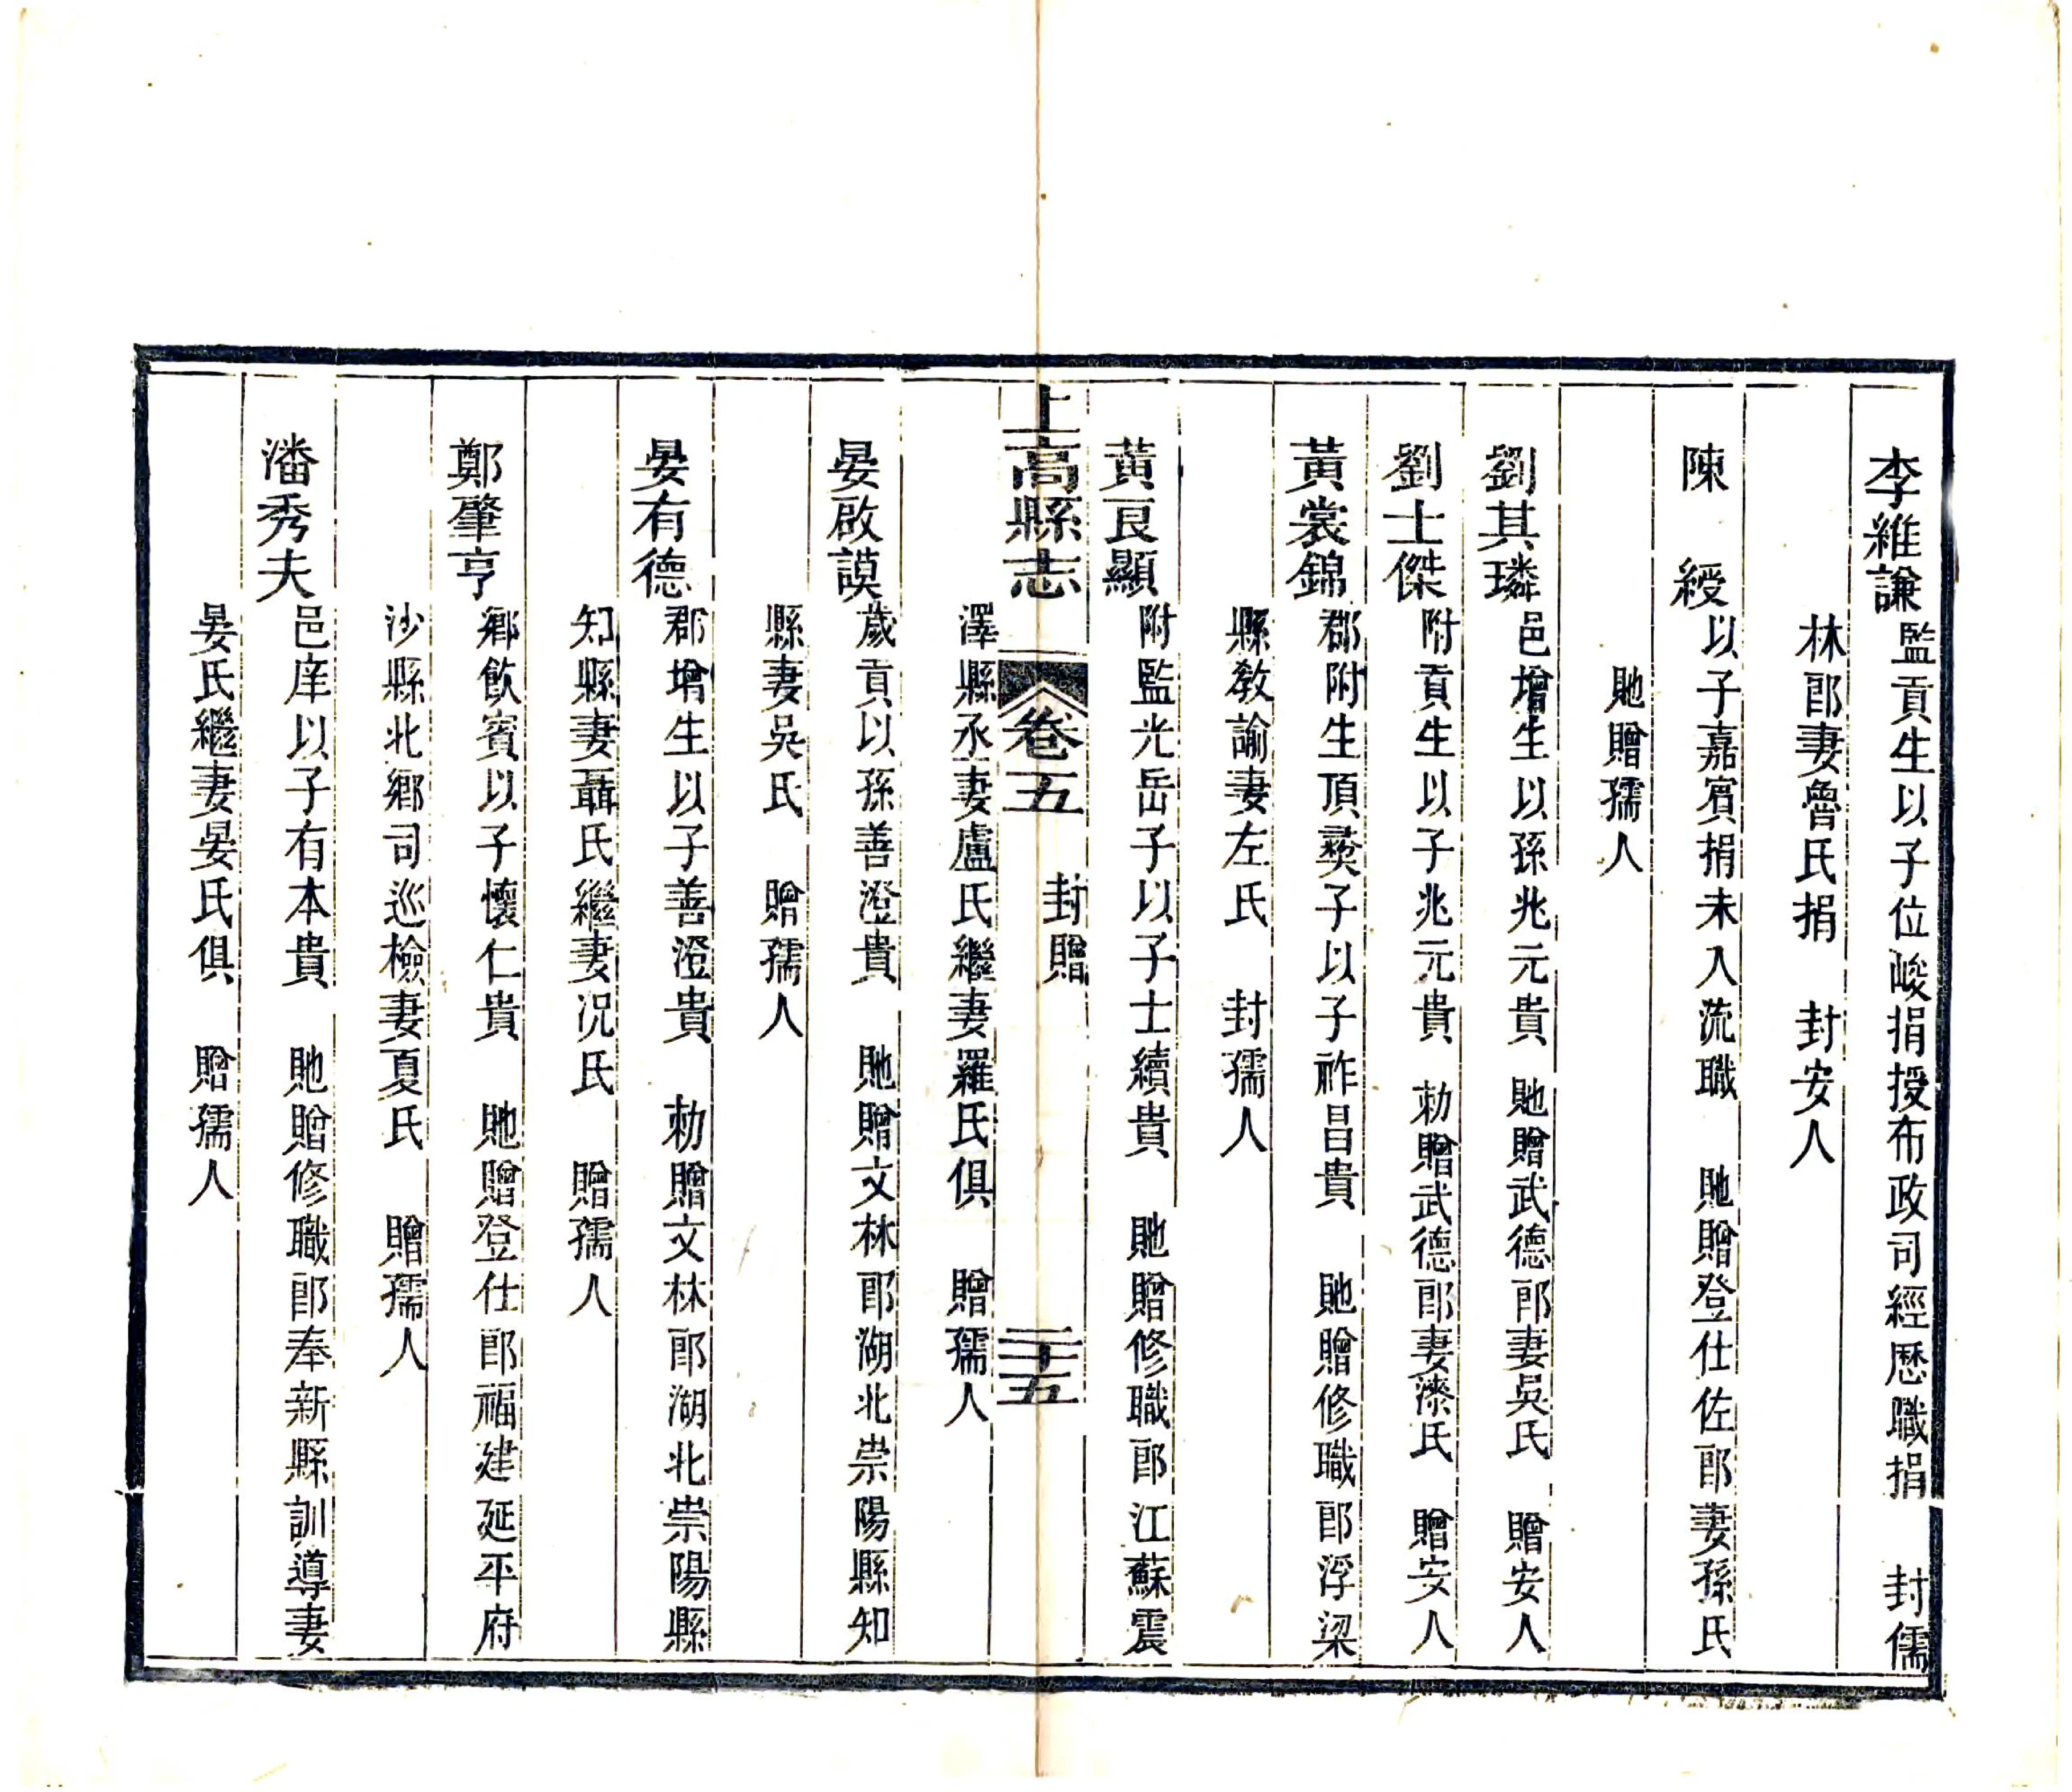 李維謙監貢生以子位峻捐授布政司經歷職捐　封儒
林郎妻魯氏捐　封安人
陳　綬以子嘉賓捐未入流職　貤贈登仕佐郎妻孫氏
貤贈孺人
劉其璘邑增生以孫兆元貴　貤贈武德郎妻吳氏　贈安人
劉士傑附貢生以子兆元貴　勅贈武德郎妻漆氏　贈安人
黃裳錦郡附生頂彀子以子祚昌貴　貤贈修職郎浮梁
縣教諭妻左氏　封孺人
黃艮顯附監光岳子以子士績貴　貤贈修職郎江蘇震
上高縣志　卷五　封贈　三十五
澤縣丞妻盧氏繼妻羅氏俱　贈孺人
晏啟謨歲貢以孫善澄貴　貤贈文林郎湖北崇陽縣知
縣妻吳氏　贈孺人
晏有德郡增生以子善澄貴　勅贈文林郎湖北崇陽縣
知縣妻聶氏繼妻況氏　贈孺人
鄭肇亨鄉飲賓以子懷仁貴　貤贈登仕郎福建延平府
沙縣北鄉司巡檢妻夏氏　贈孺人
潘秀夫邑庠以子有本貴　貤贈修職郎奉新縣訓導妻
晏氏繼妻晏氏俱　贈孺人